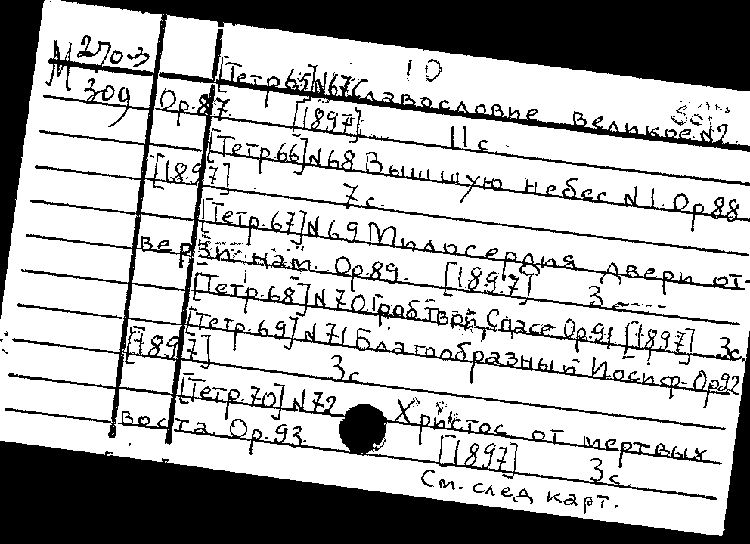 10
М 270-3
309
[Тетр. 65] №67 Славословие великое №2
Ор. 87 [1897] 11 с.
[Тетр. 66] №68 Вышшую небес №1. Ор 88
[1897] 7 с.
[Тетр. 67] №69 Милосердия двери от-
верзи нам. Ор. 89. [1897] 3 с
[Тетр. 68] №70 Гроб Твой, Спасе Ор. 91 [1897] 3с.
[Тетр. 69] №71 Благообразный Иосиф. Ор 92
[1897] 3 с
[Тетр. 70] №72 Христос от мертвых
воста Ор. 93 [1897] 3 с
См. след карт.